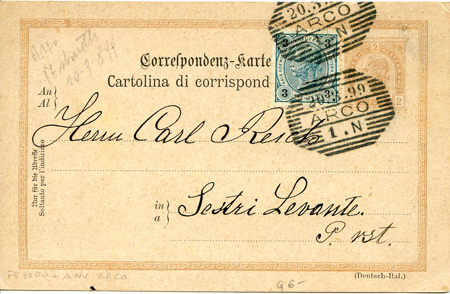 20.3.99
ARCO
1.N
Correspondenz-Karte
Cartolina di corrispond
3
3
2
2
20.3.99
ARCO
1.N
Arco
20-3-899
An
Al
Herrn Carl
Nur für die Adresse
Soltanto per l'indirizzo
in
a
Sestri Levante.
P. rst.
(Deutsch-Ital.)
96-